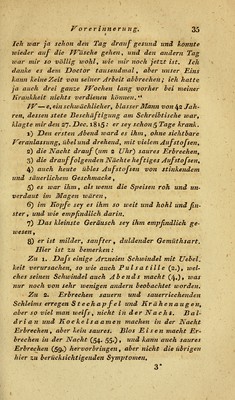 Vorerinnerung. 35
Ich war ja schon den Tag drauf gesund und konnte
wieder auf die Wäsche gehen, und den andern Tag
war mir so völlig wohl, wie mir noch jetzt ist. Ich
danke es dem Doctor tausendmal, aber unser Eins
kann keine Zeit von seiner Arbeit abbrechen; ich hatte
ja auch drei ganze Wochen lang vorher bei meiner
Krankheit nichts verdienen können.“
W—e, ein schwächlicher, blasser Mann von 42 Jah-
ren, dessen stete Beschäftigung am Schreibtische war,
klagte mir den 27. Dec. 1815: er sey schon 5 Tage krank.
1) Den ersten Abend ward es ihm, ohne sichtbare
Veranlassung, übel und drehend, mit vielem Aufstoſsen,
2) die Nacht drauf (um 2 Uhr) saures Erbrechen,
3) die drauf folgenden Nächte heftiges Aufstoſsen,
4) auch heute übles Aufstoſsen von stinkendem
und säuerlichem Geschmacke,
5) es war ihm, als wenn die Speisen roh und un-
verdaut im Magen wären,
6) im Kopfe sey es ihm so weit und hohl und fin-
ster, und wie empfindlich darin,
7) Das kleinste Geräusch sey ihm empfindlich ge-
wesen,
8) er ist milder, sanfter, duldender Gemüthsart.
Hier ist zu bemerken:
Zu 1. Daſs einige Arzneien Schwindel mit Uebel-
keit verursachen, so wie auch Pulsatille (2.), wel-
ches seinen Schwindel auch Abends macht (4.), was
nur noch von sehr wenigen andern beobachtet worden.
Zu 2. Erbrechen sauern und sauerriechenden
Schleims erregen Stechapfel und Krähenaugen,
aber so viel man weiſs, nicht in der Nacht. Bal-
drian und Kockelsaamen machen in der Nacht
Erbrechen, aber kein saures. Blos Eisen macht Er-
brechen in der Nacht (54. 55.), und kann auch saures
Erbrechen (59.) hervorbringen, aber nicht die übrigen
hier zu berücksichtigenden Symptomen.
3*